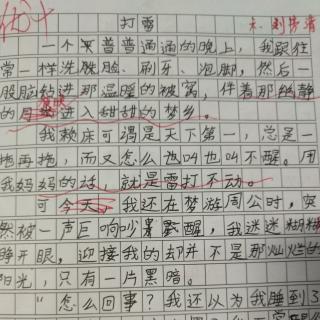 优+
打雷
一个平普普通通的晚上，我跟往
常一样洗洗脸、刷牙、泡脚，然后一
股脑钻进那温暖的被窝，伴着那幽静
的月进入甜甜的梦乡。
我赖床可谓是天下第一，总是一
拖再拖，而又怎么说叫也叫不醒。用
我妈妈的话，就是雷打不动。
可今天，我还在梦游周公时，突
然被一声巨响吵醒，我迷迷糊糊
睁开眼，迎接我的却并不是那灿烂的
阳光，只有一片黑暗。
“怎么回事？我还以为我睡到3